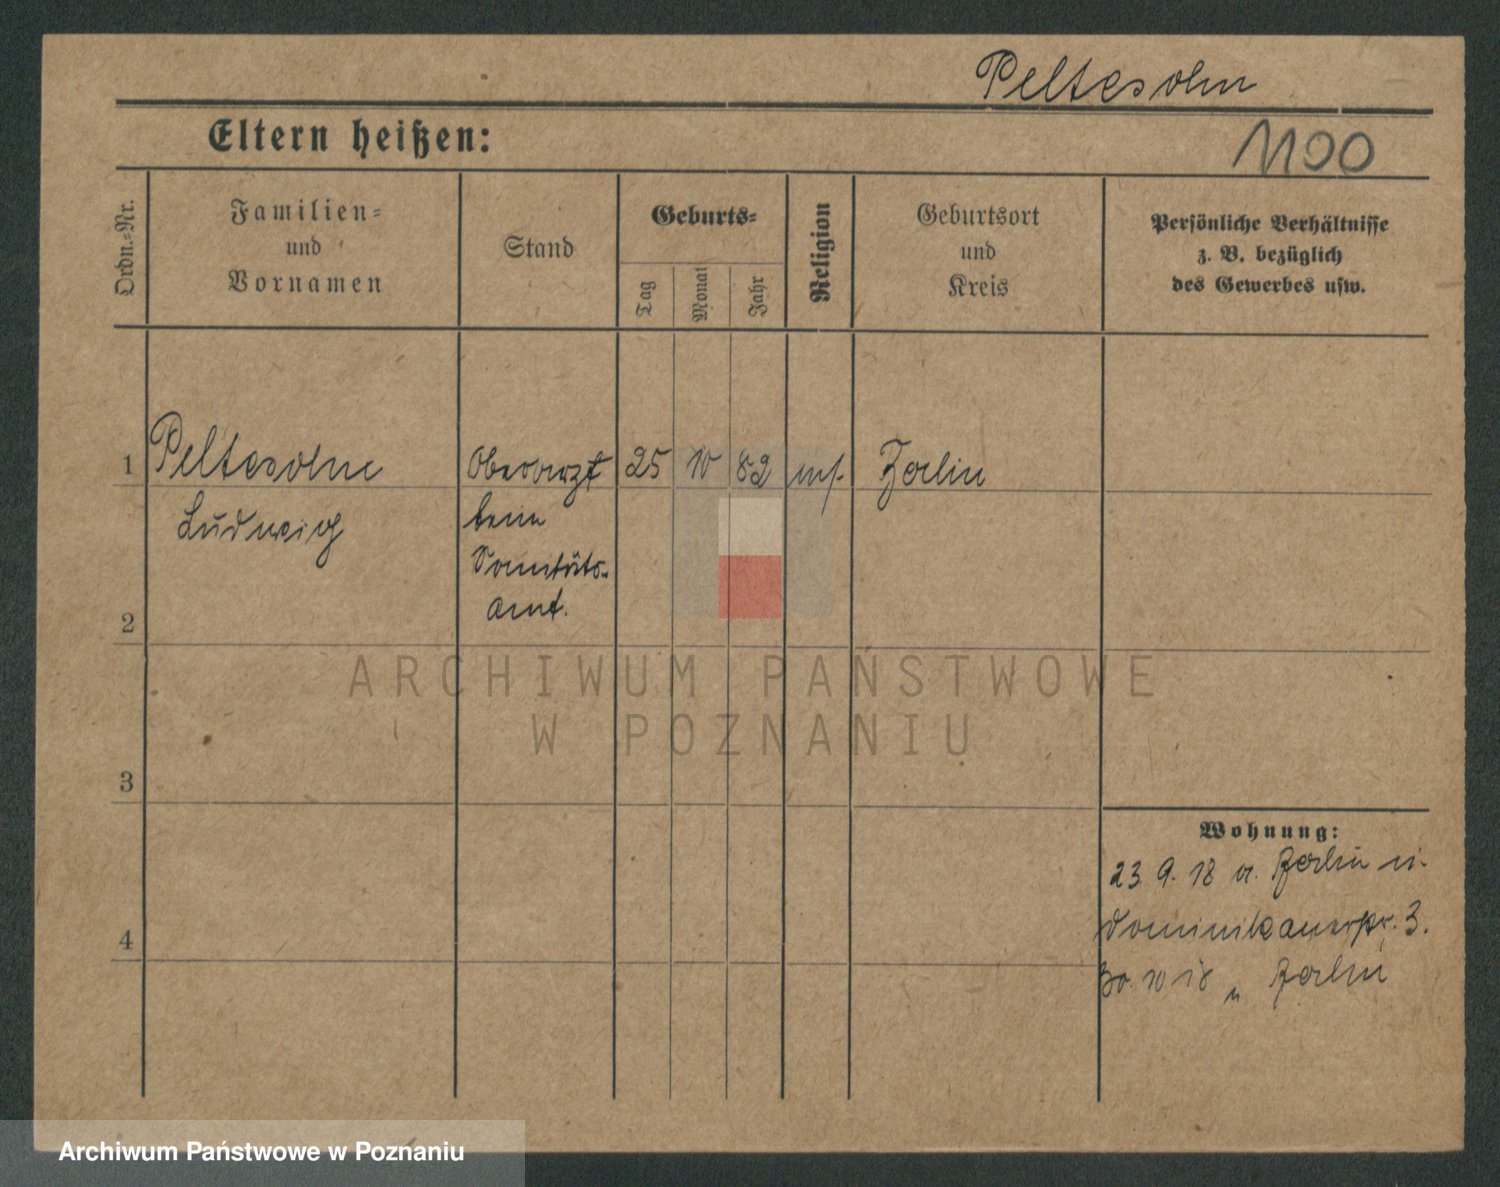 Peltesohn
Eltern heißen:
1100
Ordn.-Nr.
Familien-
und
Vornamen
Stand
Geburts-
Tag
Monat
Jahr
Religion
Geburtsort
und
Kreis
Persönliche Verhältnisse
z. B. bezüglich
des Gewerbes usw.
1 Peltesohn Oberarzt 25 10 82 Berlin
Ludwig beim
Sanitäts-
amt.
2
ARCHIWUM PAŃSTWOWE
W POZNANIU
3
Wohnung:
23 9. 18 a. Berlin n.
Dominikanerstr. 3.
4
30. 10 18 n Berlin
Archiwum Państwowe w Poznaniu